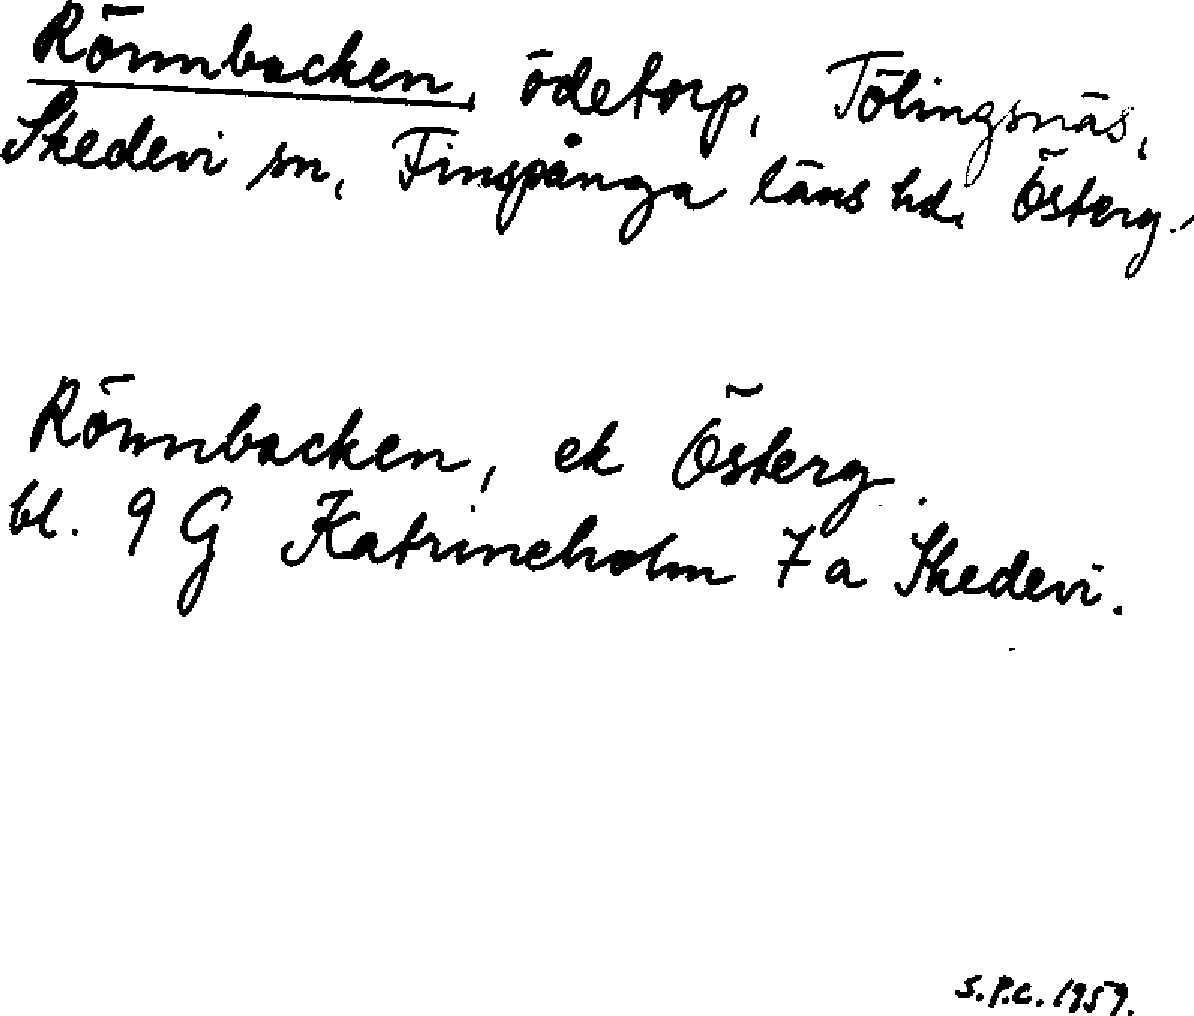 Rönnbacken, ödetorp, Tölingsnäs,
Skedevi sn, Finspånga läns hd. Österg.
Rönnbacken, ek Österg.
bl. 9 G Katrineholm 7 a Skedevi.
S.P.C. 1959.